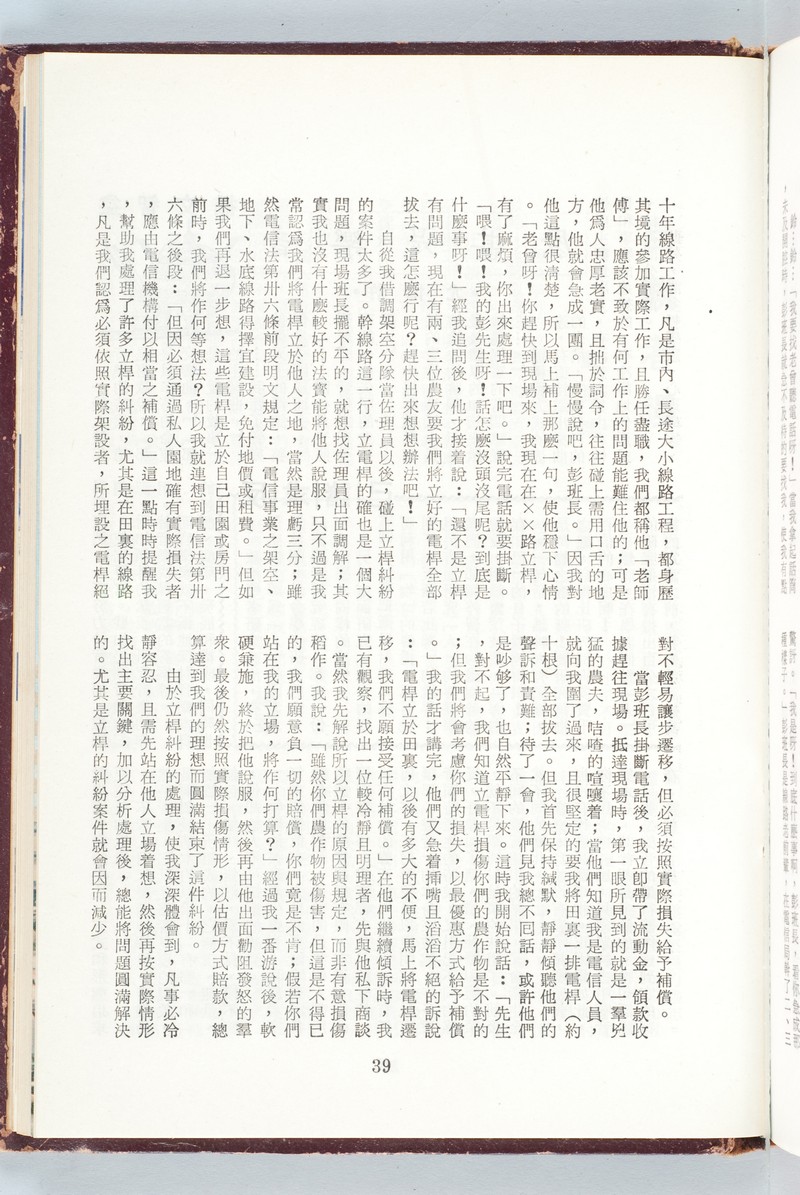 十年線路工作，凡是市內、長途大小線路工程，都身歷
其境的參加實際工作，且勝任盡職，我們都稱他「老師
傅」，應該不致於有何工作上的問題能難住他的；可是
他爲人忠厚老實，且拙於詞令，往往碰上需用口舌的地
方，他就會急成一團。「慢慢說吧，彭班長。」因我對
他這點很清楚，所以馬上補上那麼一句，使他穩下心情
。「老曾呀！你趕快到現場來，我現在在××路立桿，
有了麻煩，你出來處理一下吧。」說完電話就要掛斷。
「喂！喂！我的彭先生呀！話怎麼沒頭沒尾呢？到底是
什麼事呀！」經我追問後，他才接着說：「還不是立桿
有問題，現在有兩、三位農友要我們將立好的電桿全部
拔去，這怎麼行呢？趕快出來想想辦法吧！」
自從我借調架空分隊當佐理員以後，碰上立桿糾紛
的案件太多了。幹線路這一行，立電桿的確也是一個大
問題，現場班長擺不平的，就想找佐理員出面調解；其
實我也沒有什麼較好的法寶能將他人說服，只不過是我
常認爲我們將電桿立於他人之地，當然是理虧三分；雖
然電信法第卅六條前段明文規定：「電信事業之架空、
地下、水底線路得擇宜建設，免付地價或租費。」但如
果我們再退一步想，這些電桿是立於自己田園或房門之
前時，我們將作何等想法？所以我就連想到電信法第卅
六條之後段：「但因必須通過私人園地確有實際損失者
，應由電信機構付以相當之補償。」這一點時時提醒我
，幫助我處理了許多立桿的糾紛，尤其是在田裏的線路
，凡是我們認爲必須依照實際架設者，所埋設之電桿絕
對不輕易讓步遷移，但必須按照實際損失給予補償。
當彭班長掛斷電話後，我立卽帶了流動金，領款收
據趕往現場。抵達現場時，第一眼所見到的就是一羣兇
猛的農夫，咭喳的喧嚷着；當他們知道我是電信人員，
就向我圍了過來，且很堅定的要我將田裏一排電桿（約
十根）全部拔去。但我首先保持緘默，靜靜傾聽他們的
聲訴和責難；待了一會，他們見我總不回話，或許他們
是吵够了，也自然平靜下來。這時我開始說話：「先生
，對不起，我們知道立電桿損傷你們的農作物是不對的
；但我們將會考慮你們的損失，以最優惠方式給予補償
。」我的話才講完，他們又急着揷嘴且滔滔不絕的訴說
：「電桿立於田裏，以後有多大的不便，馬上將電桿遷
移，我們不願接受任何補償。」在他們繼續傾訴時，我
已有觀察，找出一位較冷靜且明理者，先與他私下商談
。當然我先解說所以立桿的原因與規定，而非有意損傷
稻作。我說：「雖然你們農作物被傷害，但這是不得已
的，我們願意負一切的賠償，你們竟是不肯；假若你們
站在我的立場，將作何打算？」經過我一番游說後，軟
硬兼施，終於把他說服，然後再由他出面勸阻發怒的羣
衆。最後仍然按照實際損傷情形，以估價方式賠款，總
算達到我們的理想而圓滿結束了這件糾紛。
由於立桿糾紛的處理，使我深深體會到，凡事必冷
靜容忍，且需先站在他人立場着想，然後再按實際情形
找出主要關鍵，加以分析處理後，總能將問題圓滿解決
的。尤其是立桿的糾紛案件就會因而減少。
39